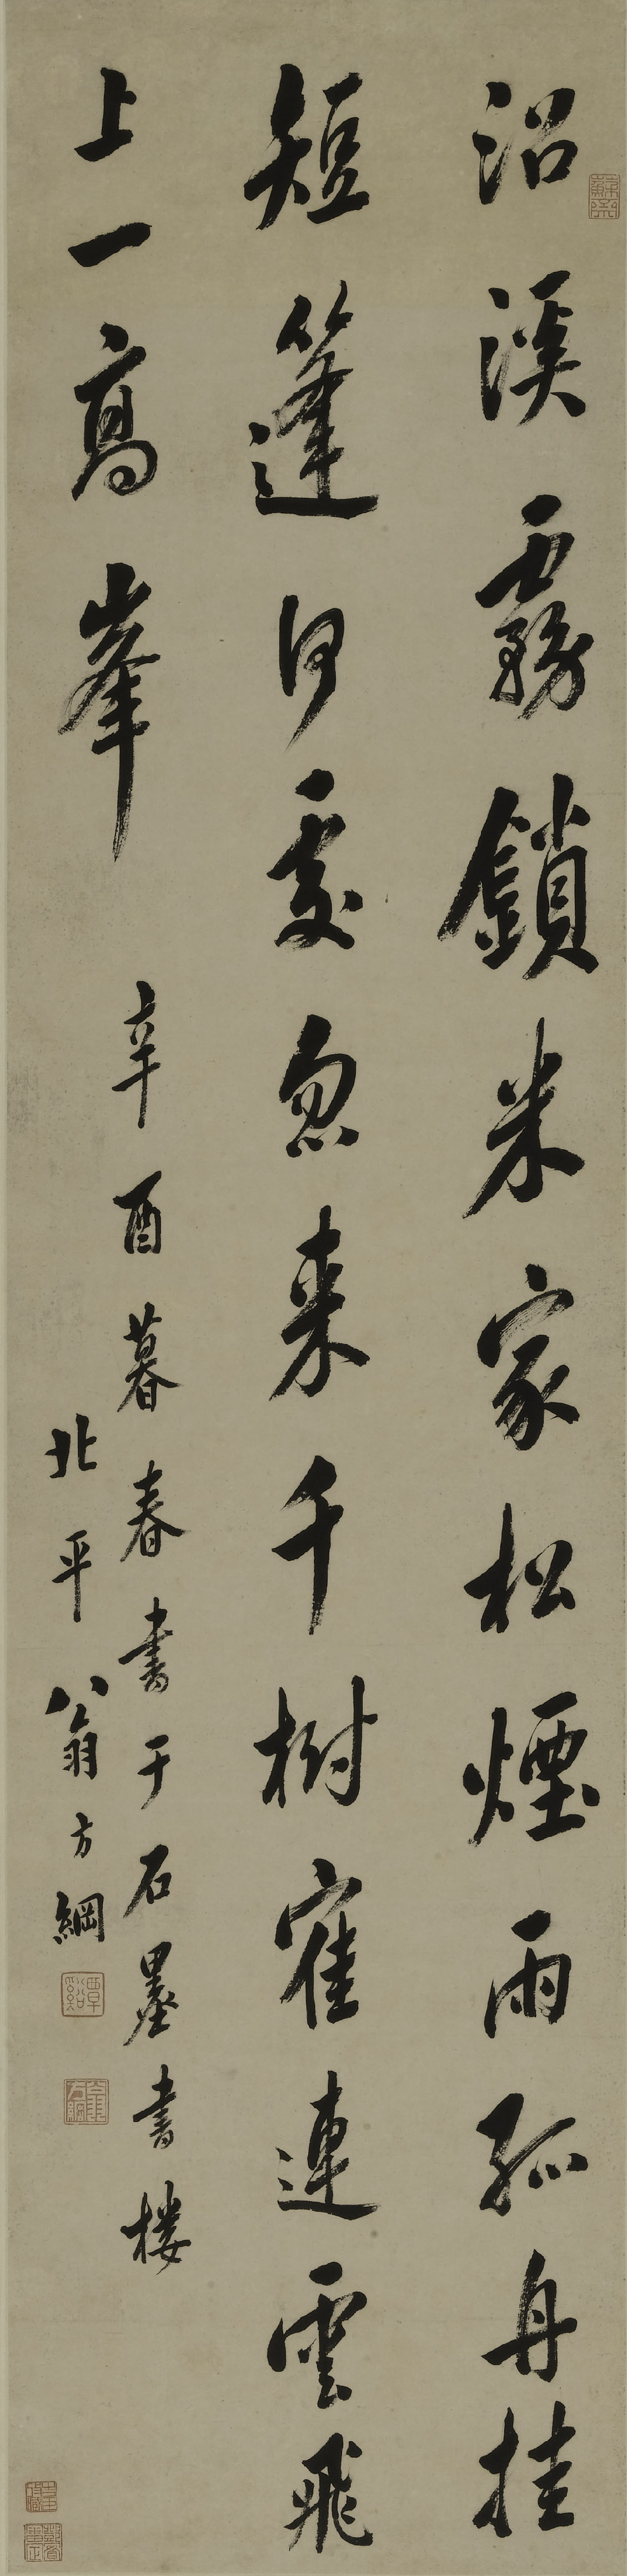 沿溪霧鎖米家松煙雨孤舟挂
短篷何處忽來千樹寉連雲飛
上一高峯
辛酉暮春書于石墨書樓
北平翁方綱
覃谿